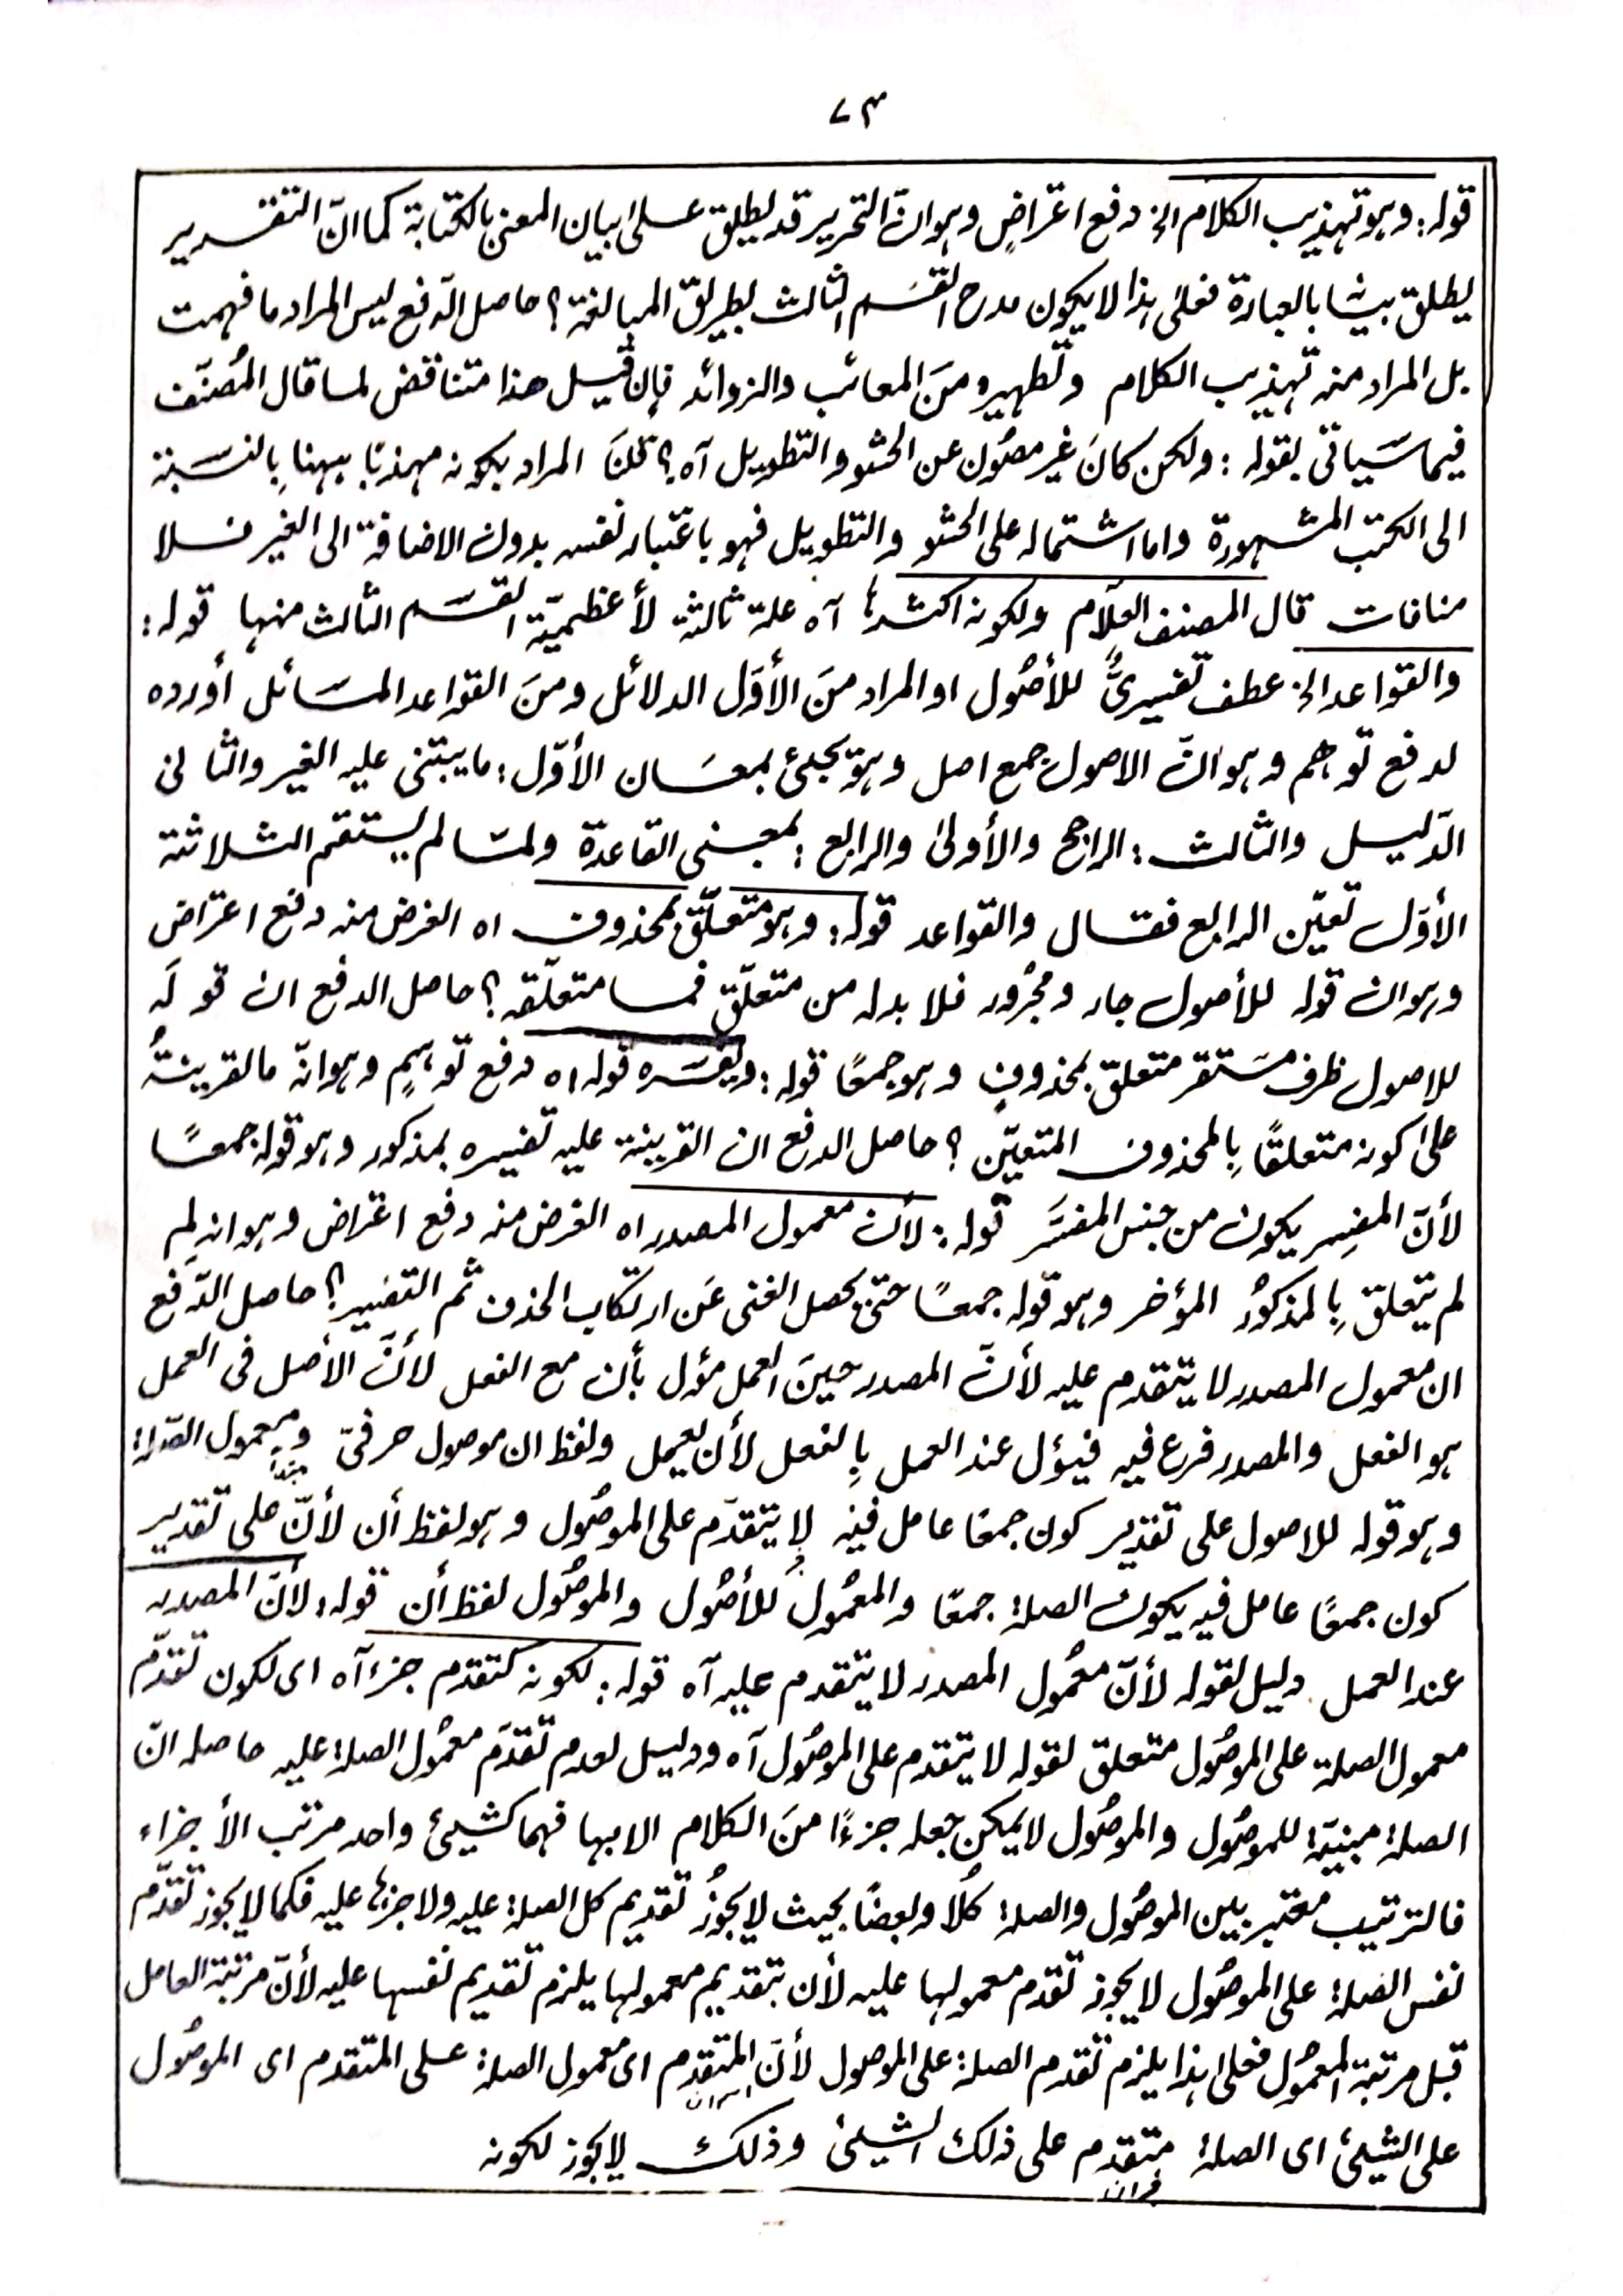 ٧٣
قوله: وهو تهذيب الكلام الخ دفع اعتراضٍ وهو انّ التحرير قد يطلق على بيان المعنى بالكتابة كما انّ التقرير
يطلق بيانها بالعبارة فعلى هذا لا يكون مدح القسم الثالث بطريق المبالغة؟ حاصل الدّفع ليس المراد ما فهمت
بل المراد منه تهذيب الكلام وتطهيره منَ المعائب والزوائد فإن قيل هذا متناقض لما قال المُصنّف
فيما سَياتى بقوله: ولكن كانَ غير مصُون عن الحشو والتطويل آه؟ قلنَا المراد بكونه مهذبًا ههنا بِالنسَبة
الى الكتب المشهورة واما اشتماله على الحشو والتطويل فهو باعتبار نفسه بدون الاضافة الى الغير فلا
منافات قال المصنف العلّام ولكونه اكثرها آه علة ثالثة لأعظميّة القسَم الثالث منها قوله:
والقواعد الخ عطف تفسيرىٌّ للأصُول او المراد منَ الأوّل الدلائل ومنَ القواعد المسَائل أورده
لدفع توهم وهو انّ الاصول جمع اصل وهو يجئ بمعَان الأوّل: ما يبتنى عليه الغير والثانى
الدّليل والثّالث: الراجح والأولىٰ والرابع: بمعنى القاعدة ولمّا لم يستقم الثلاثة
الأوَل تعيّن الرابع فقال والقواعد قوله: وهو متعلّق بمحذوف اه الغرض منه دفع اعتراض
وهو ان قوله للأصول جار ومجُرور فلا بد له من متعلّق فما متعلّقه؟ حاصل الدفع ان قولَه
للاصول ظرف مسَتقر متعلقّ بمحذوفٍ وهو جمعًا قوله: ويفسَره قوله اه دفع توهمٍ وهو انّه ما لقرينةُ
علىٰ كونه متعلقًا بِالمحذوف المتعيّن؟ حاصل الدفع ان القرينة عليه تفسيره بمذكور وهو قوله جمعًا
لأنّ المفسِر يكون من جنس المفسَّر قوله: لأن معمول المصدر اه الغرض منه دفع اعتراض وهو انه لِم
لم يتعلقّ بِالمذكوُر المؤخر وهو قوله جمعًا حتىٰ يحصل الغنى عَن ارتكاب الحذف ثم التفسير؟ حاصل الدّفع
ان معمول المصدر لا يتقدم عليه لأنّ المصدر حينَ العمل مؤل بأن مع الفعل لأنّ الأصل فى العمل
هو الفعل والمصدر فرع فيه فيؤل عند العمل بِالفعل لأن يعمل ولفظ ان موصول حرفىّ ومعمول الصّلة
وهو قوله للاصول على تقدير كون جمعًا عامل فيه لا يتقدّم على الموصُول وهو لفظ أن لأنّ على تقدير
كون جمعًا عامل فيه يكون الصلة جمعًا والمعمُول للأصُول والموصُول لفظ أن قوله: لأنّ المصدر
عند العمل دليل لقوله لأنّ معمُول المصدر لا يتقدم عليه آه قوله: لكونه كتقدم جزء آه اى لكون تقدّم
معمول الصلة على الموصُول متعلق لقوله لا يتقدم على الموصُول آه ودليل لعدم تقدّم معمُول الصلة عليه حاصله انّ
الصلة مبنيّة للموصُول والموصُول لا يمكن جعله جزءًا منَ الكلام الا بها فهما كشيئ واحد مرتب الأجزاء
فالترتيب معتبر بين الموصُول والصلة كُلا وبعضًا بحيث لا يجُوزُ تقديم كل الصلة عليه ولا جزئها عليه فكما لا يجوز تقدّم
نفس الصلة على الموصُول لا يجوز تقدم معمولها عليه لأن بتقديم معمولها يلزم تقديم نفسها عليه لأنّ مرتبة العامل
قبل مرتبة المعمُول فعلى هذا يلزم تقدم الصلة على الموصول لأنّ المتقدم اى معمول الصلة على المتقدم اى الموصُول
على الشيئ اى الصلة متقدم على ذلك الشيئ وذلك لا يجوز لكونه